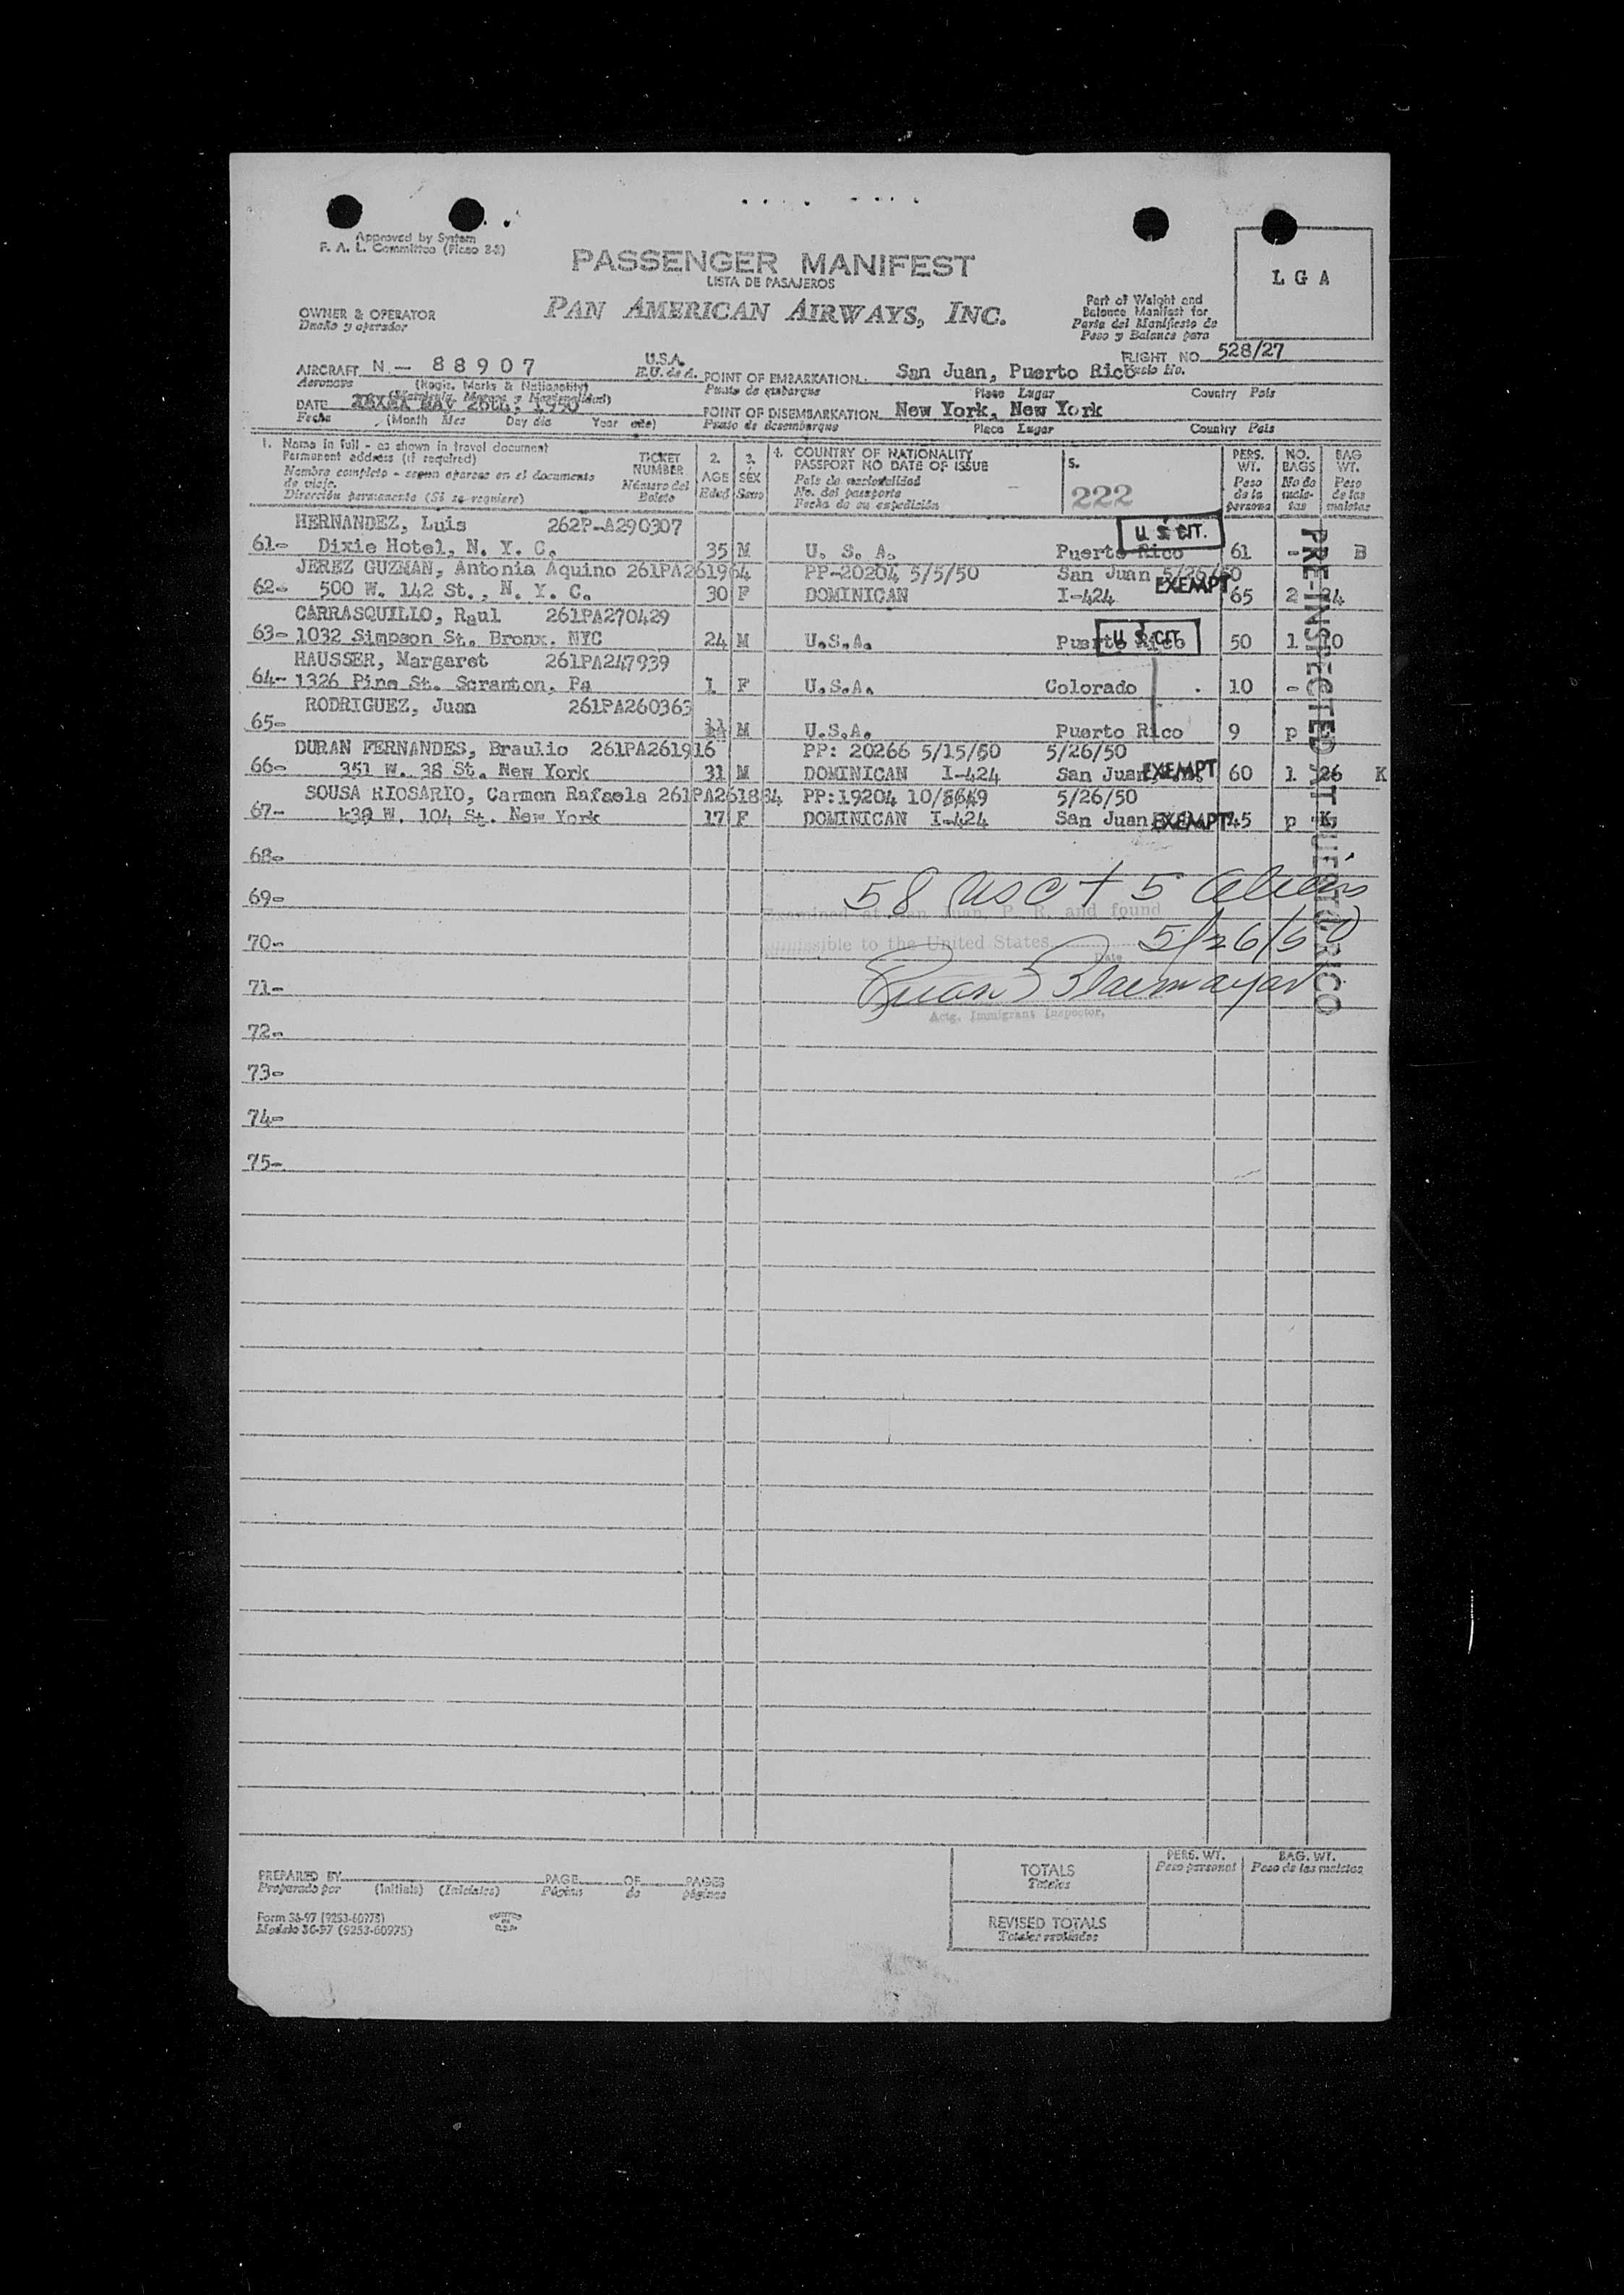 Approved by System
F. A. L. Committee (Picao 2-3)
PASSENGER MANIFEST
LISTA DE PASAJEROS
PAN AMERICAN AIRWAYS, INC.
L G A
OWNER & OPERATOR
Dueño y operador
Part of Weight and
Balance Manifest for
Parte del Manifiesto de
Peso y Balance para
FLIGHT NO. 528/27
Vuelo No.
AIRCRAFT N - 88907 U.S.A.
Aeronave (Regis. Marks & Nationality) E.U. de A.
(Matricula, Marcas y Nacionalidad)
POINT OF EMBARKATION San Juan, Puerto Rico
Punto de embarque Place Lugar Country Pais
DATE MAY 26th, 1950
Fecha (Month Mes Day dia Year año)
POINT OF DISEMBARKATION New York, New York
Punto de desembarque Place Lugar Country Pais
1. Name in full - as shown in travel document
Permanent address (if required)
Nombre completo - segun aparece en el documento
de viaje.
Dirección permanente (Si se requiere)
TICKET
NUMBER
Número del
Boleto
2.
AGE
Edad
3.
SEX
Sexo
4. COUNTRY OF NATIONALITY
PASSPORT NO DATE OF ISSUE
Pais de nacionalidad
No. del pasaporte
Fecha de su expedición
5.
222
PERS.
WT.
Peso
de la
persona
NO.
BAGS
No de
male-
tas
BAG
WT.
Peso
de las
maletas
HERNANDEZ, Luis 262P-A290307 U. S. CIT.
61- Dixie Hotel, N. Y. C. 35 M U. S. A. Puerto Rico 61 - B
JEREZ GUZMAN, Antonia Aquino 261PA261964 PP-20204 5/5/50 San Juan 5/26/50
62- 500 W. 142 St., N. Y. C. 30 F DOMINICAN I-424 EXEMPT 65 2 24
CARRASQUILLO, Raul 261PA270429
63- 1032 Simpson St. Bronx. NYC 24 M U.S.A. Puerto Rico U. S. CIT. 50 1
HAUSSER, Margaret 261PA247939
64- 1326 Pine St. Scranton, Pa 1 F U.S.A. Colorado 10 -
RODRIGUEZ, Juan 261PA260363
65- M U.S.A. Puerto Rico 9 p
DURAN FERNANDES, Braulio 261PA261916 PP: 20266 5/15/50 5/26/50
66- 351 W. 38 St. New York 31 M DOMINICAN I-424 San Juan EXEMPT 60 1 26 K
SOUSA RIOSARIO, Carmen Rafaela 261PA261884 PP:19204 5/26/50
67- W. 104 St. New York 17 F DOMINICAN I-424 San Juan EXEMPT 45 p K
PRE-INSPECTED AT PUERTO RICO
68-
58 USC + 5 aliens
69-
Examined at San Juan, P. R. and found
70-
admissible to the United States 5/26/50
Date
71-
Actg. Immigrant Inspector.
72-
73-
74-
75-
PREPARED BY PAGE OF PAGES
Preparado por (Initials) (Iniciales) Página de páginas
Form 36-97 (9253-60975)
Modelo 36-97 (9253-60975)
TOTALS
Totales
PERS. WT.
Peso personal
BAG. WT.
Peso de las maletas
REVISED TOTALS
Totales revisados